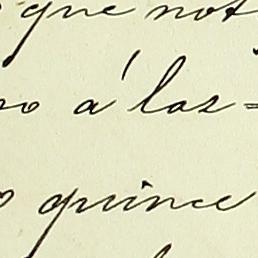 que not
no á las=
o quince